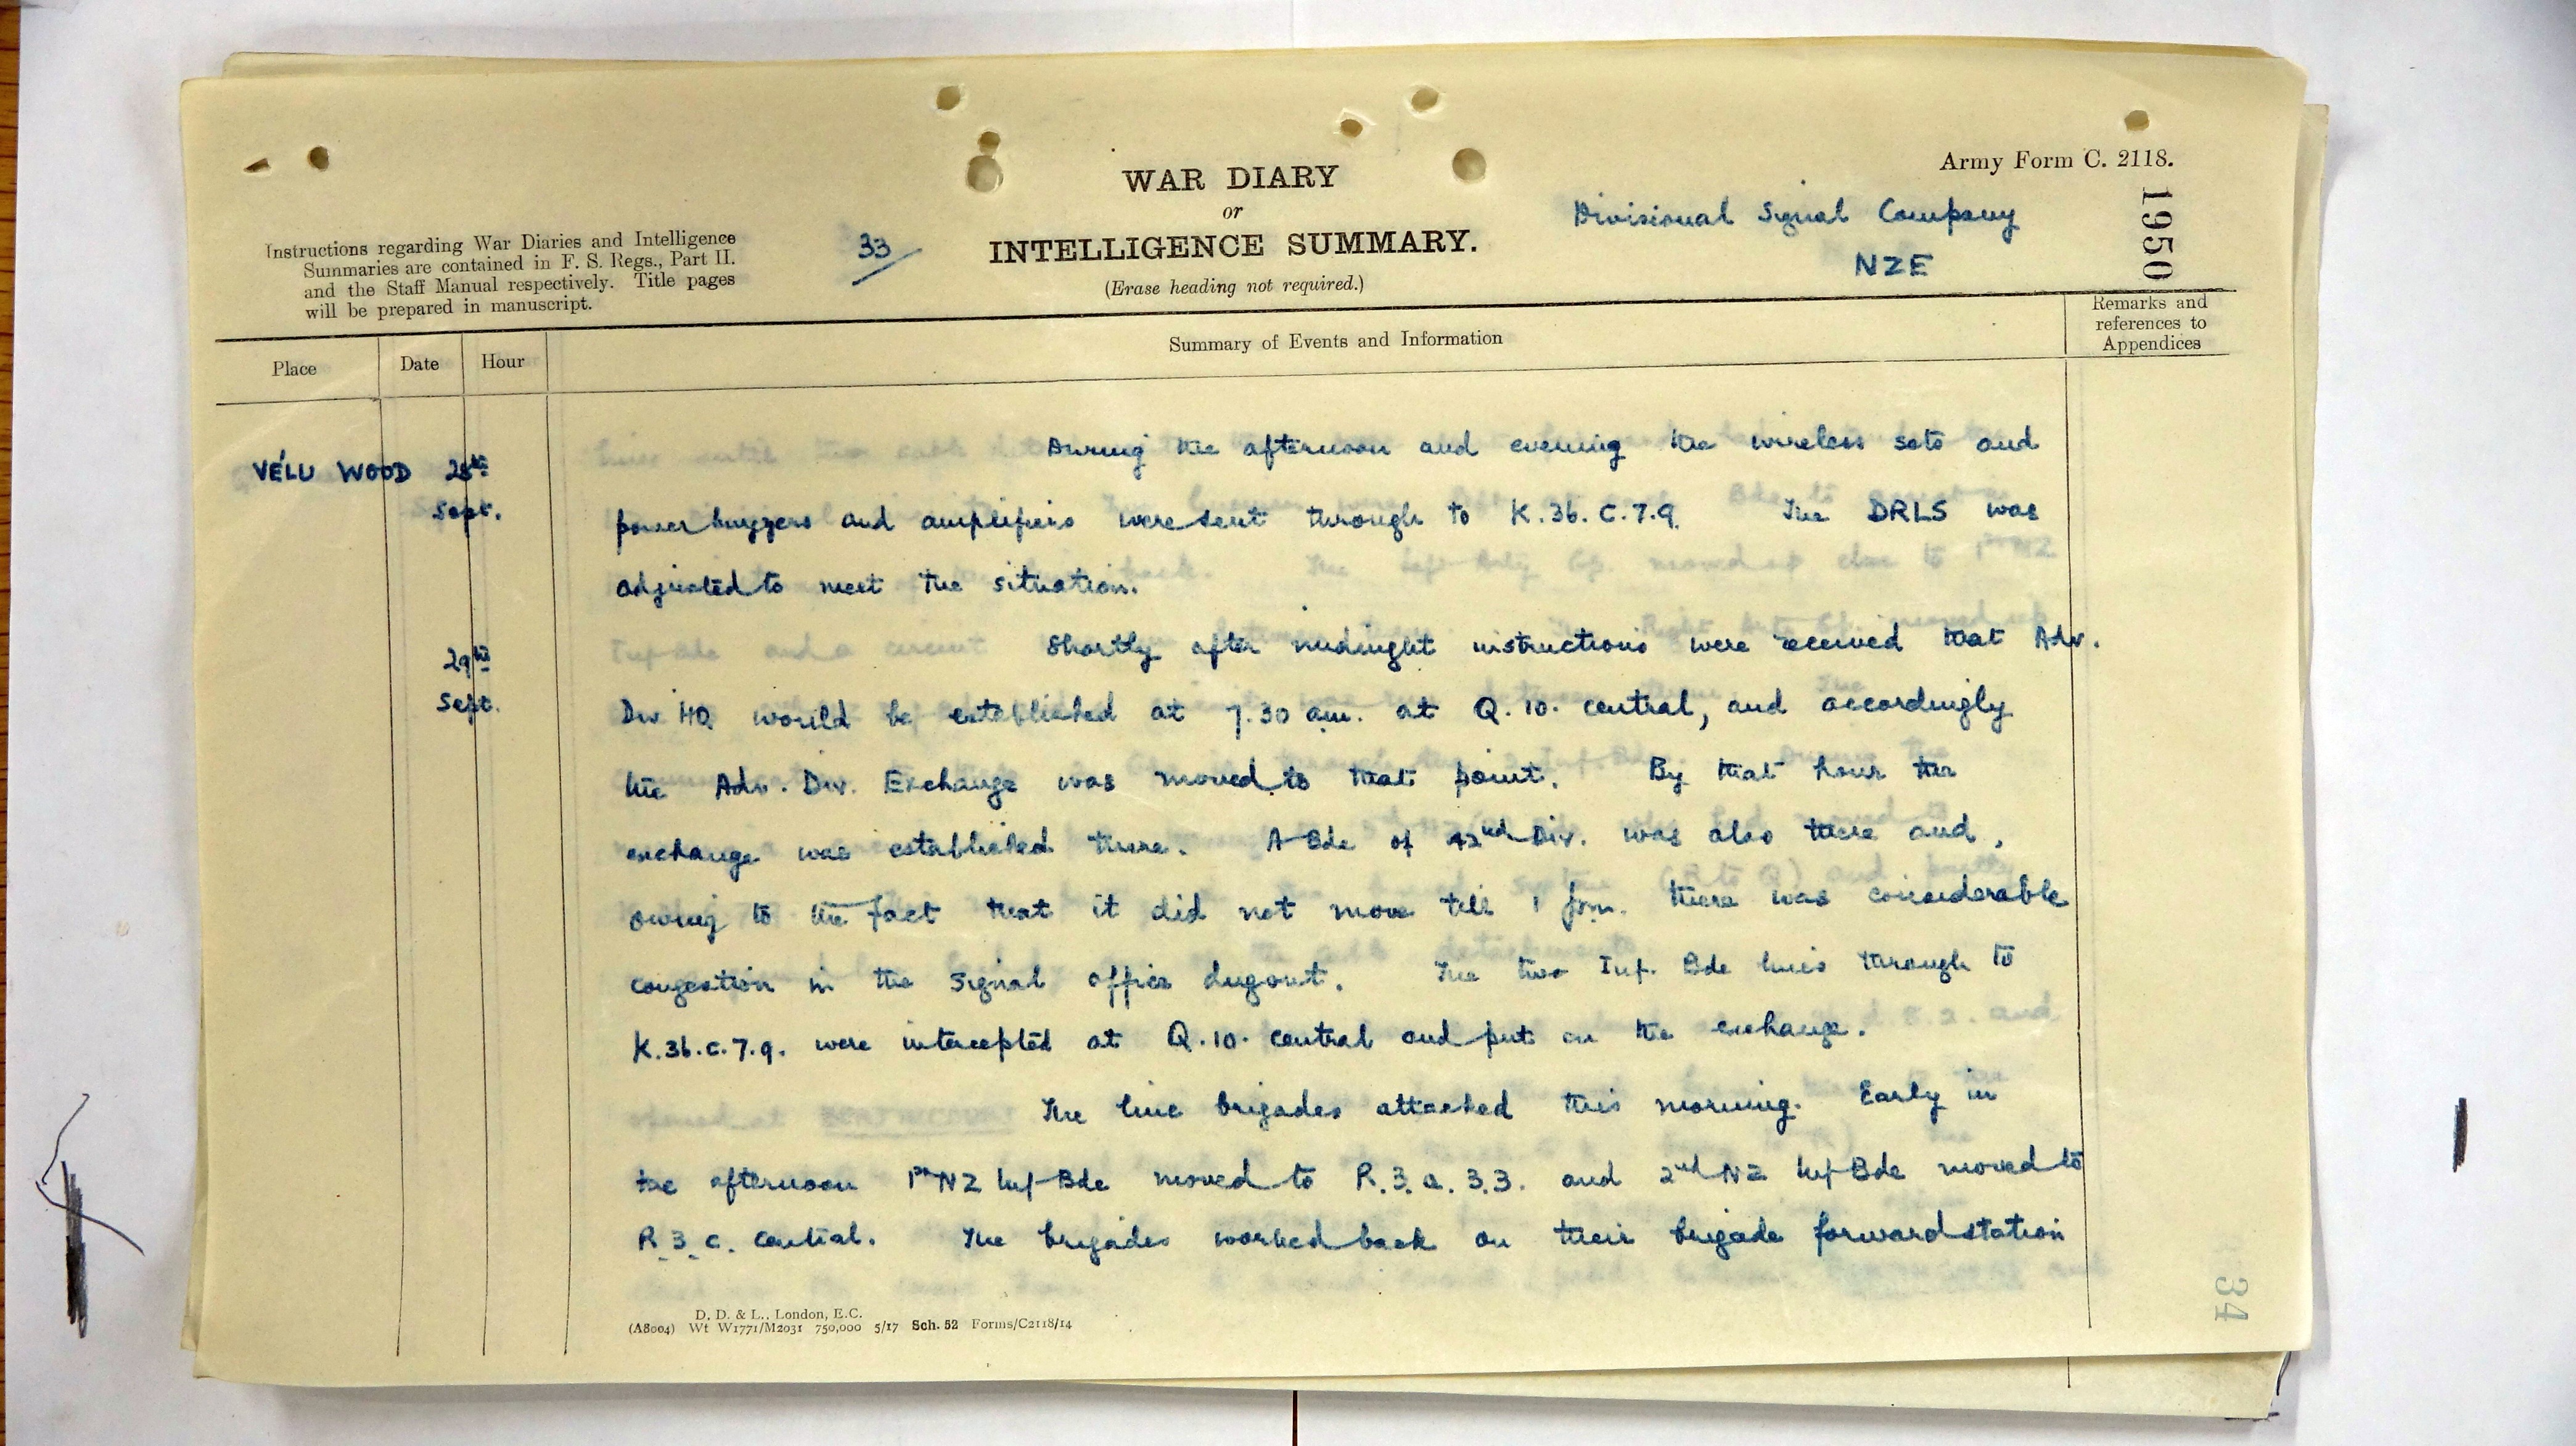 Army Form C. 2118.
WAR DIARY
or
INTELLIGENCE SUMMARY.
(Erase heading not required.)
Instructions regarding War Diaries and Intelligence
Summaries are contained in F. S. Regs., Part II.
and the Staff Manual respectively. Title pages
will be prepared in manuscript.
33
Divisional Signal Company
NZE
1950
Place
Date
Hour
Summary of Events and Information
Remarks and
references to
Appendices
VÉLU WOOD 28th
Sept.
During the afternoon and evening the wireless sets and
power buzzers and amplifiers were sent through to K.36.C.7.9. The DRLS was
adjusted to meet the situation.
29th
Sept.
Shortly after midnight instructions were received that Adv.
Div HQ would be established at 7.30 am. at Q.10. central, and accordingly
the Adv. Div. Exchange was moved to that point. By that hour the
exchange was established there. A Bde of 42nd Div. was also there and,
owing to the fact that it did not move till 1 pm. there was considerable
congestion in the Signal office dugout. The two Inf. Bde lines through to
K.36.c.7.9. were intercepted at Q.10. central and put on the exchange.
The line brigades attacked this morning. Early in
the afternoon 1st NZ Inf Bde moved to R.3.a.3.3. and 2nd NZ Inf Bde moved to
R.3.c. central. The brigades worked back on their brigade forward station
D. D. & L., London, E.C.
(A8004) Wt W1771/M2031 750,000 5/17 Sch. 52 Forms/C2118/14
34